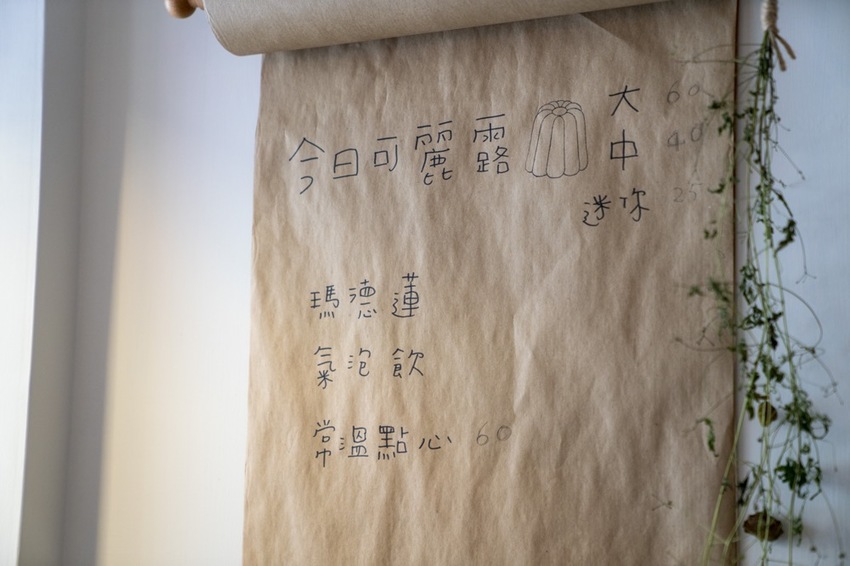 今日可麗露 大 60
中 40
迷你 25
瑪德蓮
氣泡飲
常溫點心 60